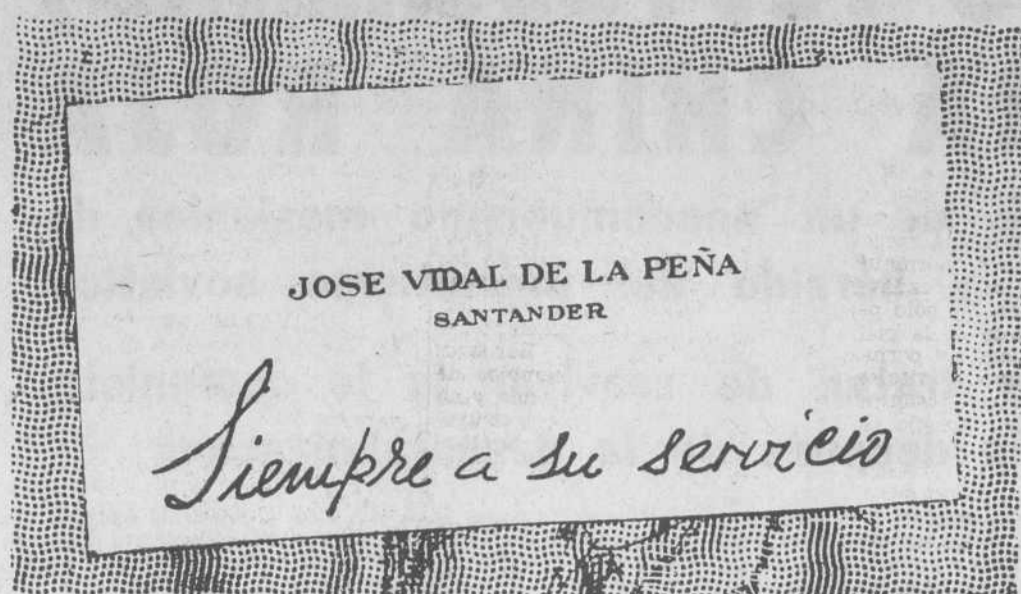 JOSE VIDAL DE LA PEÑA
SANTANDER
Siempre a su servicio